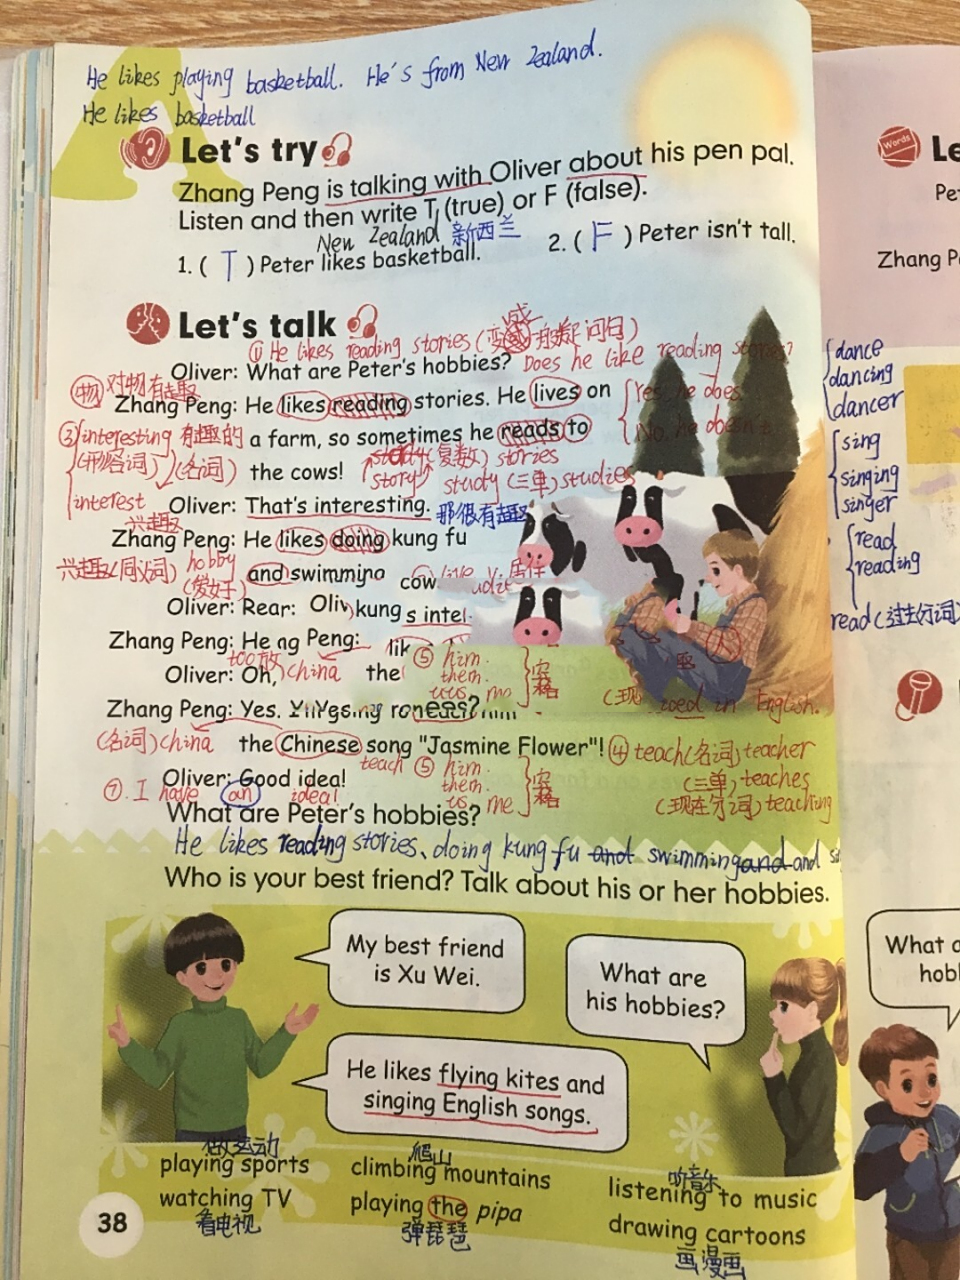 He likes playing basketball. He's from New Zealand.
He likes basketball
Let's try
Zhang Peng is talking with Oliver about his pen pal.
Listen and then write T (true) or F (false).
New Zealand 新西兰
1. ( T ) Peter likes basketball.
2. ( F ) Peter isn't tall.
Let's talk
① He likes reading stories (变成一般疑问句)
Oliver: What are Peter's hobbies? Does he like reading stories?
物 对物有趣
Zhang Peng: He likes reading stories. He lives on
Yes, he does.
③ interesting 有趣的
a farm, so sometimes he reads to
No, he doesn't.
(形容词) (名词)
the cows!
story (复数) stories
study (三单) studies
interest
Oliver: That's interesting. 那很有趣
兴趣
Zhang Peng: He likes doing kung fu
兴趣 (同义词) hobby
(爱好)
and swimming
cow
Oliver:
kung
s intel
Zhang Peng: He
Peng:
lik
⑤ him
them
us me
宾格
Oliver: Oh,
china
the
in English.
Zhang Peng: Yes.
(名词) China
the Chinese song "Jasmine Flower"!
④ teach (名词) teacher
(三单) teaches
(现在分词) teaching
teach ⑤ him
them
us me
宾格
Oliver: Good idea!
⑦. I have an idea!
What are Peter's hobbies?
He likes reading stories, doing kung fu and swimming and and
Who is your best friend? Talk about his or her hobbies.
My best friend
is Xu Wei.
What are
his hobbies?
He likes flying kites and
singing English songs.
做运动
playing sports
爬山
climbing mountains
听音乐
listening to music
watching TV
看电视
playing the pipa
弹琵琶
drawing cartoons
画漫画
38
Words
Le
Pe
Zhang P
dance
dancing
dancer
sing
singing
singer
read
reading
read (过去分词)
What a
hob